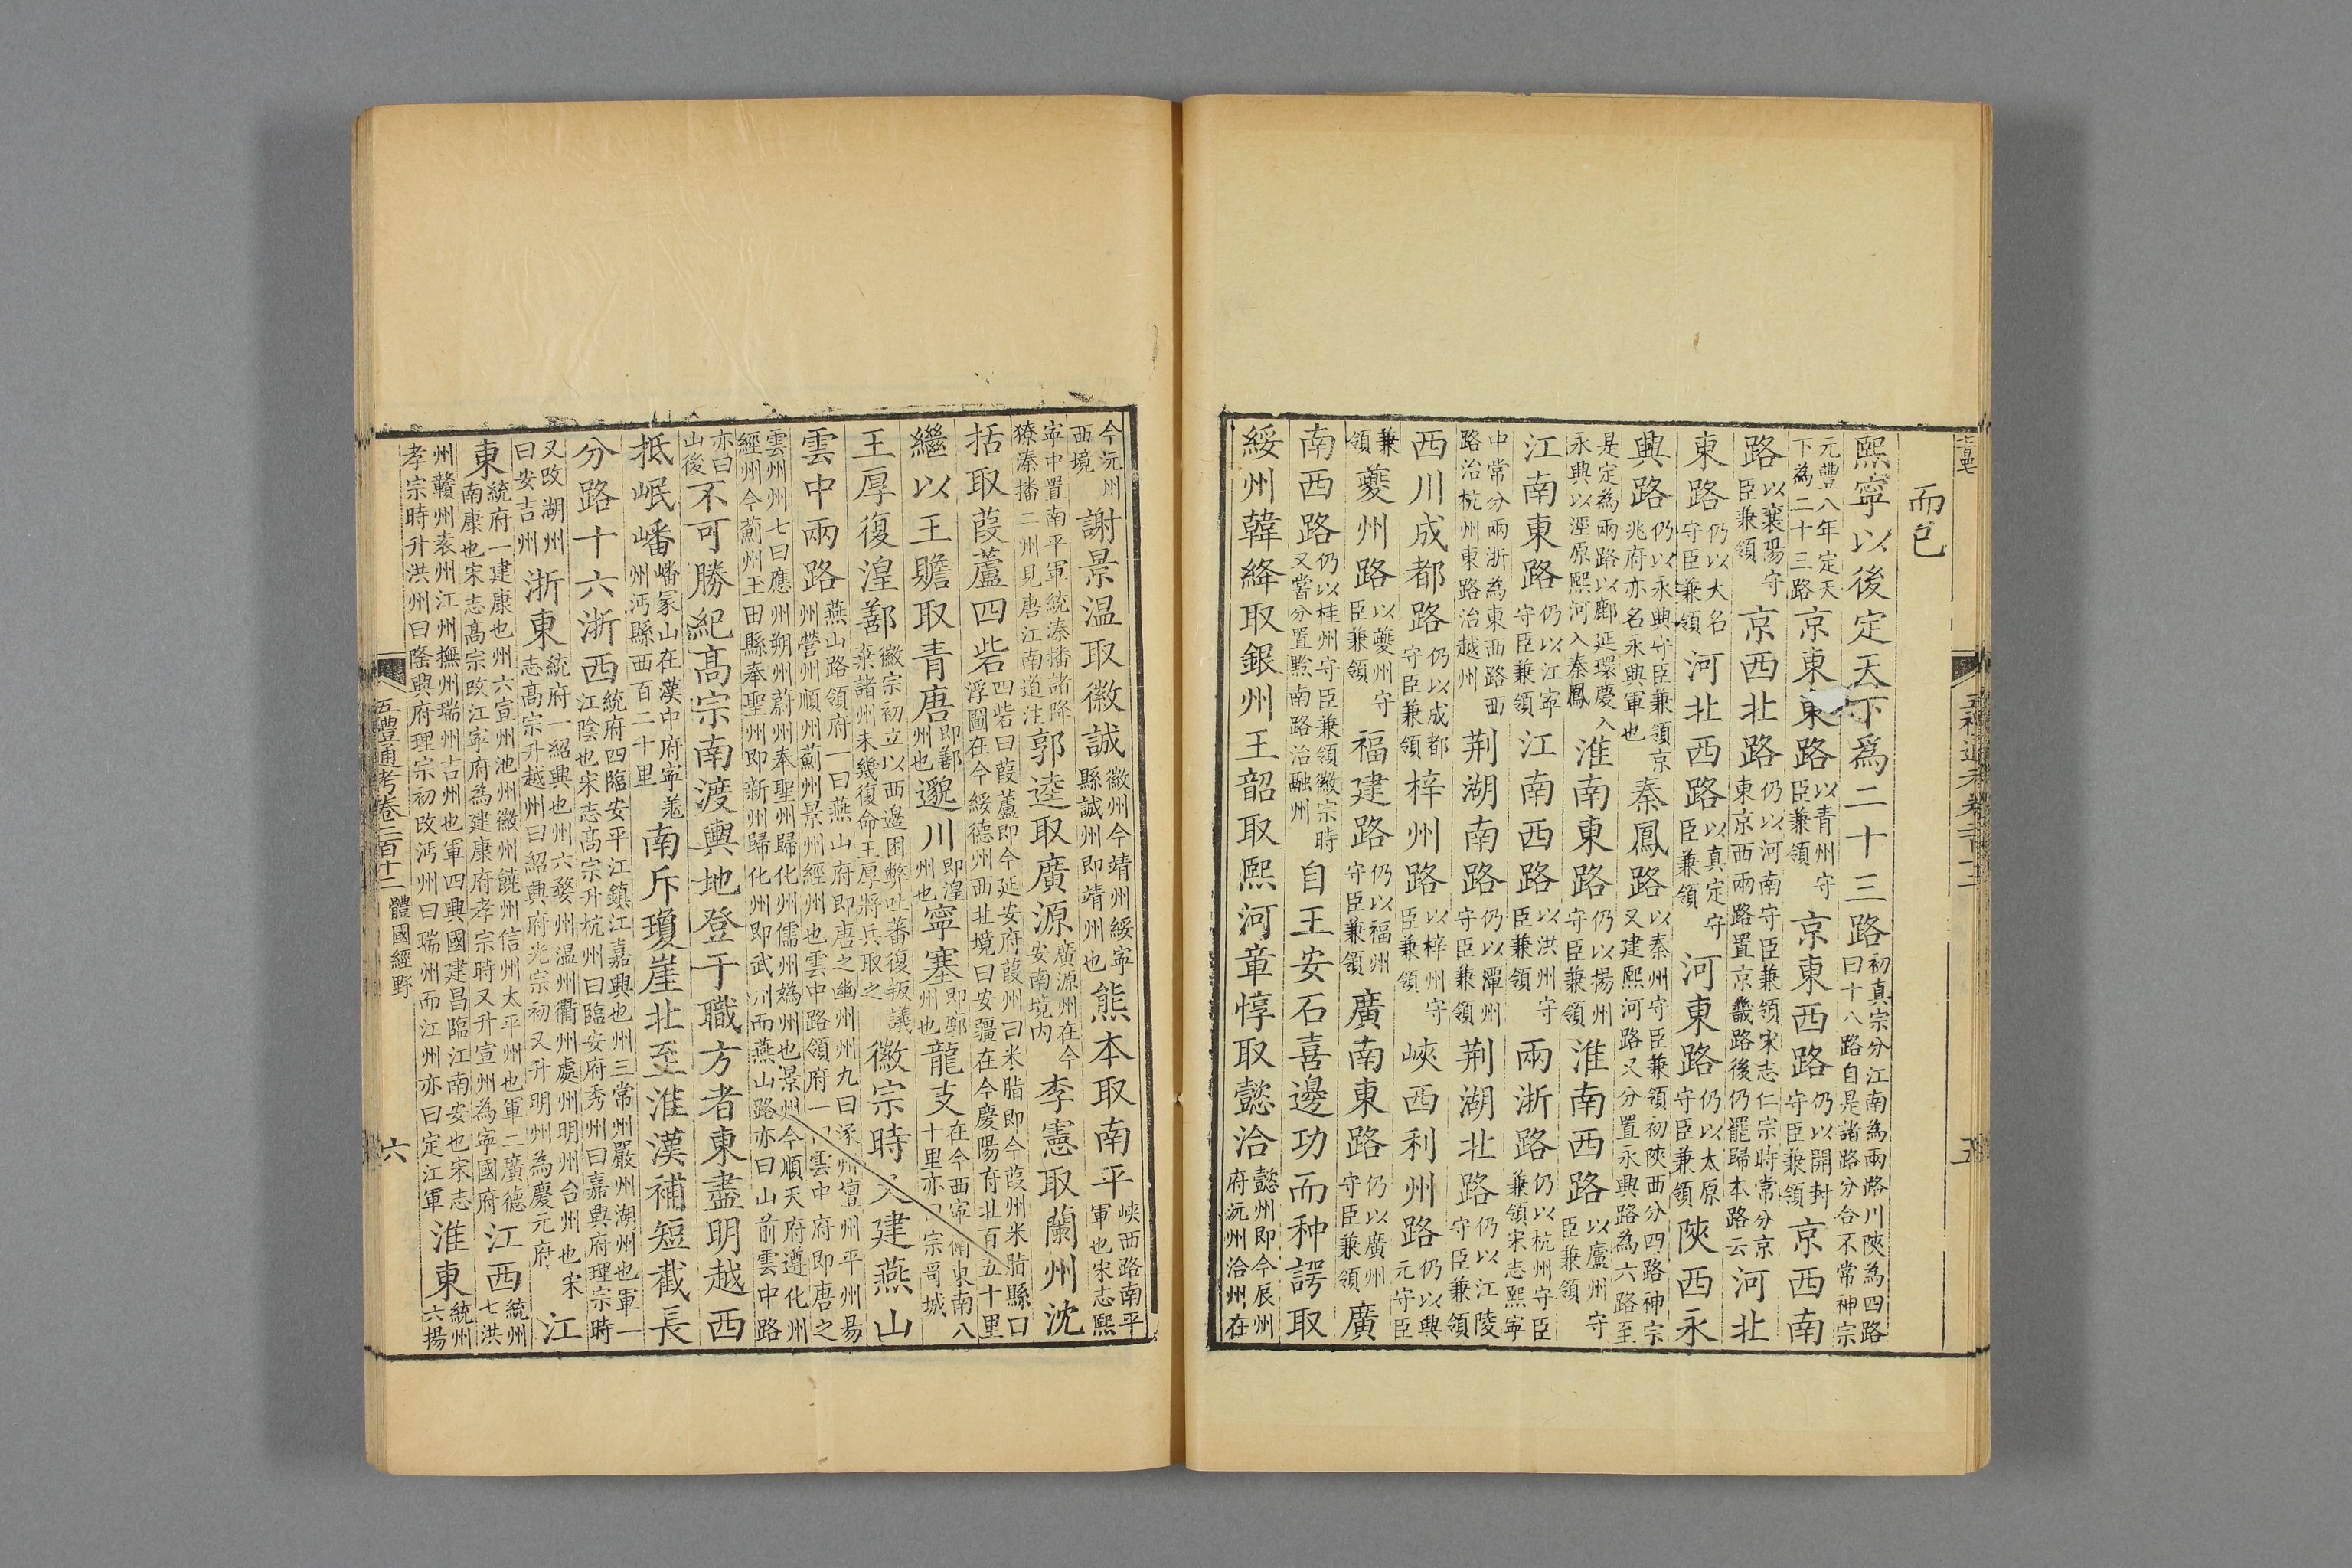 而已
熙寧以後定天下為二十三路初真宗分江南為兩路川陝為四路曰十八路自是諸路分合不常神宗
元豐八年定天下為二十三路京東東路以青州守臣兼領京東西路仍以開封守臣兼領京西南
路以襄陽守臣兼領京西北路仍以河南守臣兼領宋志仁宗時常分京東京西兩路置京畿路後仍罷歸本路云河北
東路仍以大名守臣兼領河北西路以真定守臣兼領河東路仍以太原守臣兼領陝西永
興路仍以永興守臣兼領京兆府亦名永興軍也秦鳳路以秦州守臣兼領初陝西分四路神宗又建熙河路又分置永興路為六路至
是定為兩路以鄜延環慶入永興以涇原熙河入秦鳳淮南東路仍以揚州守臣兼領淮南西路以廬州守臣兼領
江南東路仍以江寧守臣兼領江南西路以洪州守臣兼領兩浙路仍以杭州守臣兼領宋志熙寧
中常分兩浙為東西路西路治杭州東路治越州荆湖南路仍以潭州守臣兼領荆湖北路仍以江陵守臣兼領
西川成都路仍以成都守臣兼領梓州路以梓州守臣兼領峽西利州路仍以興元守臣
兼領夔州路以夔州守臣兼領福建路仍以福州守臣兼領廣南東路仍以廣州守臣兼領廣
南西路仍以桂州守臣兼領徽宗時又嘗分置黔南路治融州自王安石喜邊功而种諤取
綏州韓絳取銀州王韶取熙河章惇取懿洽懿州即今辰州府沅州洽州在
今沅州西境謝景温取徽誠徽州今靖州綏寧縣誠州即靖州也熊本取南平峽西路南平軍也宋志熙
寧中置南平軍統溱播諸降獠溱播二州見唐江南道注郭逵取廣源廣源州在今安南境内李憲取蘭州沈
括取葭蘆四砦四砦曰葭蘆即今延安府葭州曰米脂即今葭州米脂縣曰浮圖在今綏德州西北境曰安疆在今慶陽府北百五十里
繼以王贍取青唐即鄯州也邈川即湟州也寧塞即廓州也龍支在今西寧衛東南八十里亦曰宗哥城
王厚復湟鄯徽宗初立以西邊困弊吐蕃復叛議棄諸州未幾復命王厚將兵取之徽宗時又建燕山
雲中兩路燕山路領府一曰燕山府即唐之幽州州九曰涿州壇州平州易州營州順州薊州景州經州也雲中路領府一曰雲中府即唐之
雲州州七曰應州朔州蔚州奉聖州歸化州儒州媯州也景州今順天府遵化州經州今薊州玉田縣奉聖州即新州歸化州即武州而燕山路亦曰山前雲中路
亦曰山後不可勝紀高宗南渡輿地登于職方者東盡明越西
抵岷嶓嶓冢山在漢中府寧羗州沔縣西百二十里南斥瓊崖北至淮漢補短截長
分路十六浙西統府四臨安平江鎮江嘉興也州三常州嚴州湖州也軍一江陰也宋志高宗升杭州曰臨安府秀州曰嘉興府理宗時
又改湖州曰安吉州浙東統府一紹興也州六婺州温州衢州處州明州台州也宋志高宗升越州曰紹興府光宗初又升明州為慶元府江
東統府一建康也州六宣州池州徽州饒州信州太平州也軍二廣德南康也宋志高宗改江寧府為建康府孝宗時又升宣州為寧國府江西統州七洪
州贛州袁州江州撫州瑞州吉州也軍四興國建昌臨江南安也宋志孝宗時升洪州曰隆興府理宗初改沔州曰瑞州而江州亦曰定江軍淮東統州六揚
五禮通考卷二百十二 體國經野
六